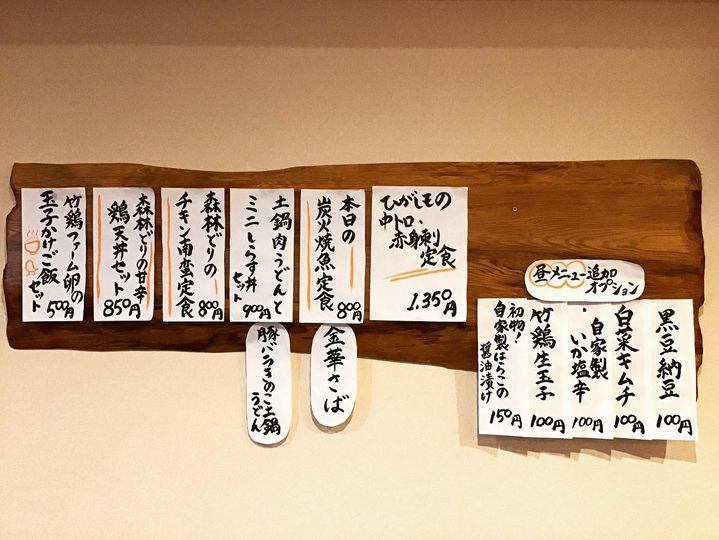 ひがしもの
中トロ、
赤身刺り
定食
1.350円
本日の
炭火焼魚定食
800円
金華さば
土鍋肉うどんと
ミニしらす丼
セット
900円
豚バラきのこ土鍋
うどん
森林どりの
チキン南蛮定食
800円
森林どりの甘辛
鶏天丼セット
850円
竹鶏ファーム卵の
玉子かけご飯
セット
500円
昼メニュー追加
オプション
黒豆納豆
100円
白菜キムチ
100円
自家製
いか塩辛
100円
竹鶏生玉子
100円
初物!
自家製はらこの
醤油漬け
150円